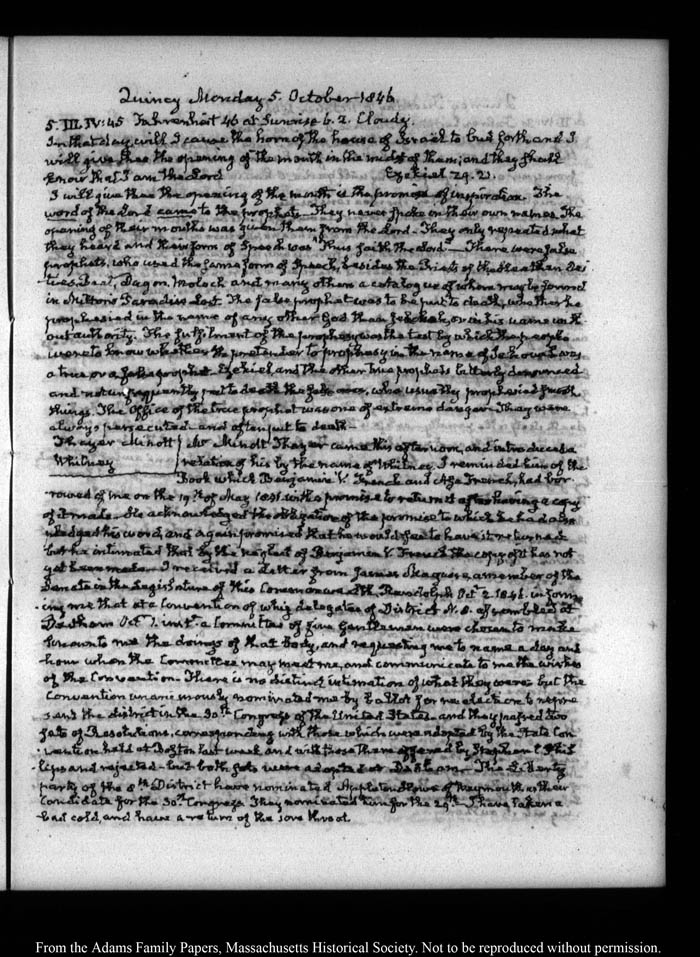 Quincy Monday 5. October 1846
5. III. IV:45 Fahrenheit 46 at Sunrise 6.2. Cloudy.
In that day will I cause the horn of the house of Israel to bud forth, and I
will give thee the opening of the mouth in the midst of them; and they shall
know that I am the Lord Ezekiel 29. 21.
I will give thee the opening of the mouth is the promise of inspiration. The
word of the Lord came to the prophets. They never spoke in their own names. The
opening of their mouths was given them from the Lord. They only repeated what
they heard and their form of Speech was "Thus saith the Lord" There were false
prophets, who used the same form of Speech, besides the Priests of the Heathen Dei
ties, Baal, Dagon, Moloch and many others a catalogue of whom may be found
in Milton's Paradise Lost. The false prophet was to be put to death, whether he
prophesied in the name of any other God than Jehovah, or in his name with
out authority. The fulfilment of the prophesy was the test by which the people
were to know whether the pretender to prophesy in the name of Jehovah was
a true or a false prophet. Ezekiel, and the other true prophets bitterly denounced
and not unfrequently put to death the false ones, who usually prophesied smooth
things. The Office of the true prophet was one of extreme danger. They were
always persecuted and often put to death—
Thayer Minott Mr Minott Thayer came this afternoon, and introduced a
Whitney relation of his by the name of Whitney. I reminded him of the
Book which Benjamin V. French and Asa French, had bor
rowed of me on the 19th of May 1845 with a promise to return it after having a copy
of it made. He acknowledged the obligation of the promise to which he had
pledged his word, and again promised that he would see to have it returned
but he intimated that by the neglect of Benjamin V. French the copy of it has not
yet been made. I received a Letter from James Maguire a member of the
Senate in the Legislature of this Commonwealth, Randolph Oct 2 1846. inform
ing me that at a Convention of whig delegates of District N. 8. assembled at
Dedham Oct 1. inst. a Committee of five Gentlemen were chosen to make
known to me the doings of that Body, and requesting me to name a day and
hour when the Committee may meet me, and communicate to me the wishes
of the Convention. There is no distinct intimation of what they were but the
Convention unanimously nominated me by ballot for reelection to repre
sent the district in the 30th Congress of the United States. and they passed two
sets of Resolutions, corresponding with those which were adopted by the State Con
vention held at Boston last week and with those then offered by Stephen C. Phil
lips and rejected—but both sets were adopted at Dedham. The Liberty
party of the 8th District have nominated Appleton Howe of Weymouth as their
Candidate for the 30th Congress They nominated him for the 29th I have taken a
bad cold, and have a return of the sore throat.
From the Adams Family Papers, Massachusetts Historical Society. Not to be reproduced without permission.